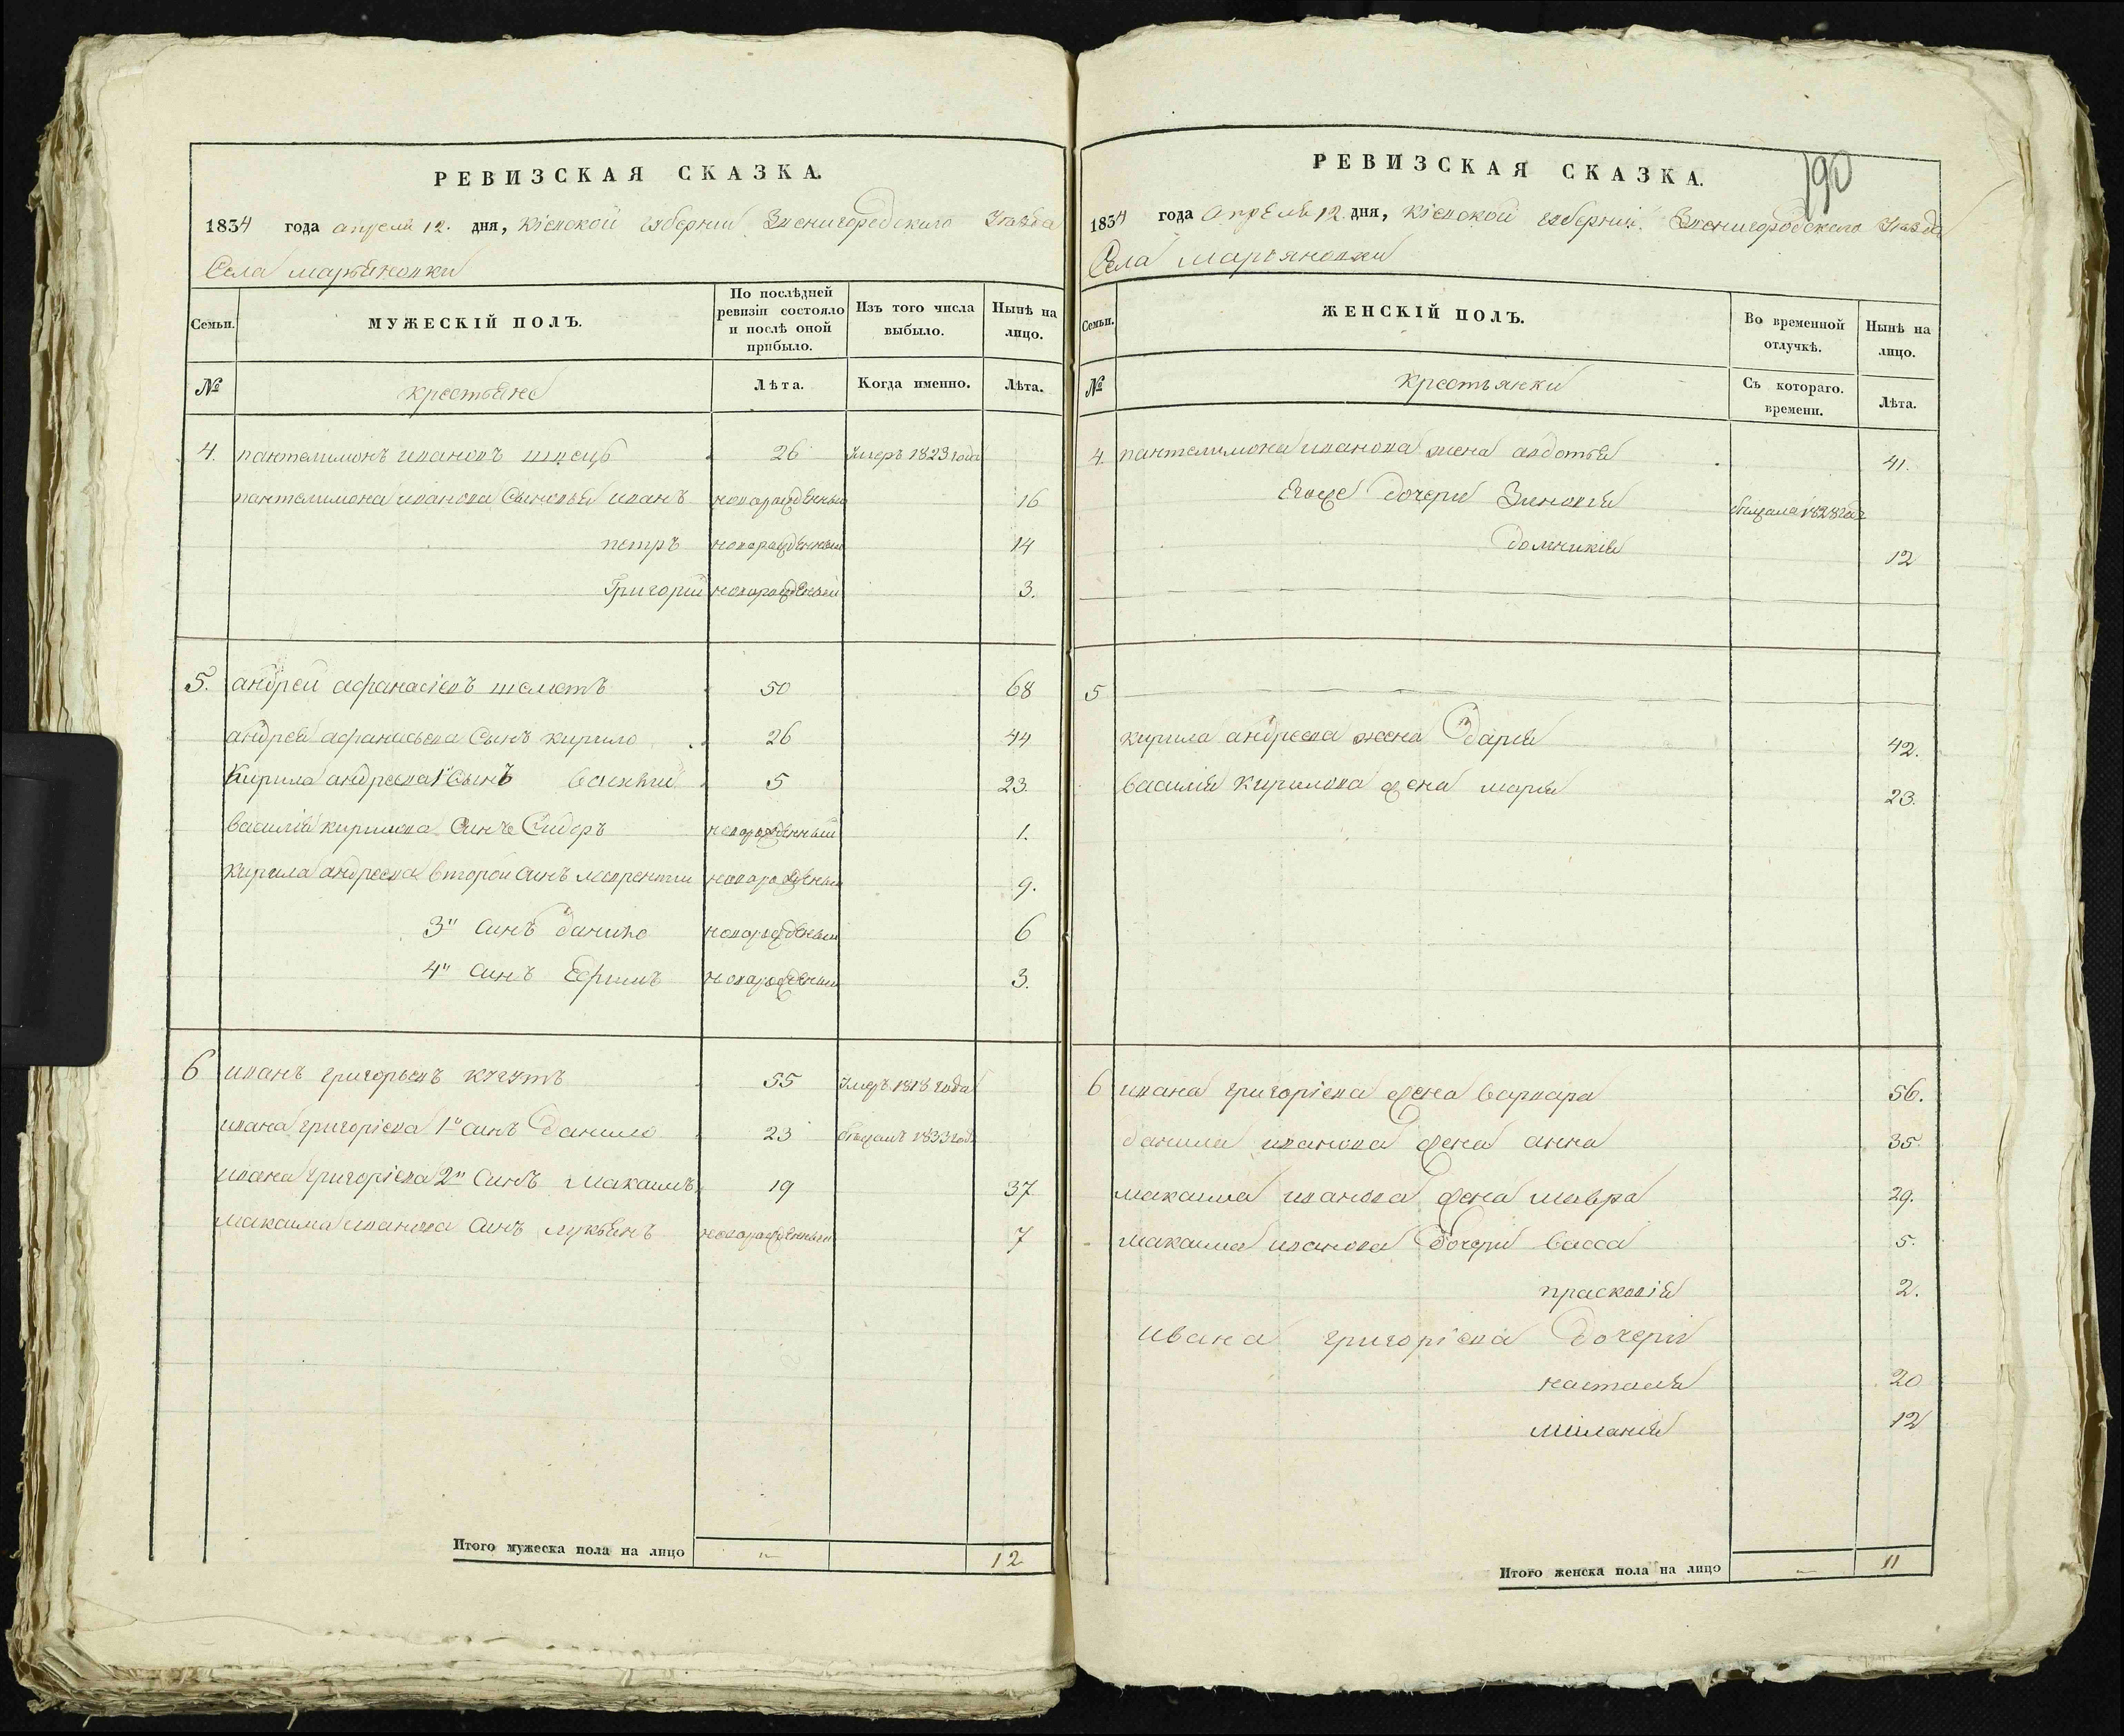 РЕВИЗСКАЯ СКАЗКА.
1834 года апреля 12. дня, Кіевской губернии Звенигородского Уезда
Села Марьяновки
Семьи.
МУЖЕСКІЙ ПОЛЪ.
По послѣдней ревизіи состояло и послѣ оной прибыло.
Изъ того числа выбыло.
Нынѣ на лицо.
№
крестьяне
Лѣта.
Когда именно.
Лѣта.
4. пантелимонъ ивановъ швецъ 26 умеръ 1823 года
пантелимона иванова Сыновья иванъ новорожденный 16
петръ новорожденный 14
Григорий новорожденый 3.
5. андрей афанасіевъ шелестъ 50 68
андрея афанасьева Сынъ кирило 26 44
Кирила андреева 1й Сынъ василий 5 23.
василия кирилова Синъ Сидоръ новорожденный 1.
кирила андреева второй Синъ лаврентии новорожденый 9.
3й Синъ данило новорожденый 6
4й Синъ Ефимъ новорожденый 3.
6 иванъ григорьевъ когутъ 55 умеръ 1818 года
ивана григоріева 1й Синъ Данило 23 бежалъ 1833 года
ивана григоріева 2й Синъ Максимъ 19 37
максима иванова Синъ лукьянъ новорожденный 7
Итого мужеска пола на лицо 12
РЕВИЗСКАЯ СКАЗКА.
190
1834 года апреля 12. дня, Кіевской губерніи. Звенигородского Уезда
Села Марьяновки
Семьи.
ЖЕНСКІЙ ПОЛЪ.
Во временной отлучкѣ.
Нынѣ на лицо.
№
крестьянки
Съ котораго. времени.
Лѣта.
4. пантелимона иванова жена авдотья 41.
Егоже дочери Зиновия бежала 1828 года
домникия 12
5
кирила андреева жена Дарья 42.
василия кирилова жена марья 23.
6 ивана григоріева жена варвара 56.
данила иванова жена анна 35.
максима иванова жена мавра 29.
максима иванова дочери васса 5.
прасковія 2.
ивана григоріева дочери
настасия 20
милания 12
Итого женска пола на лицо 11